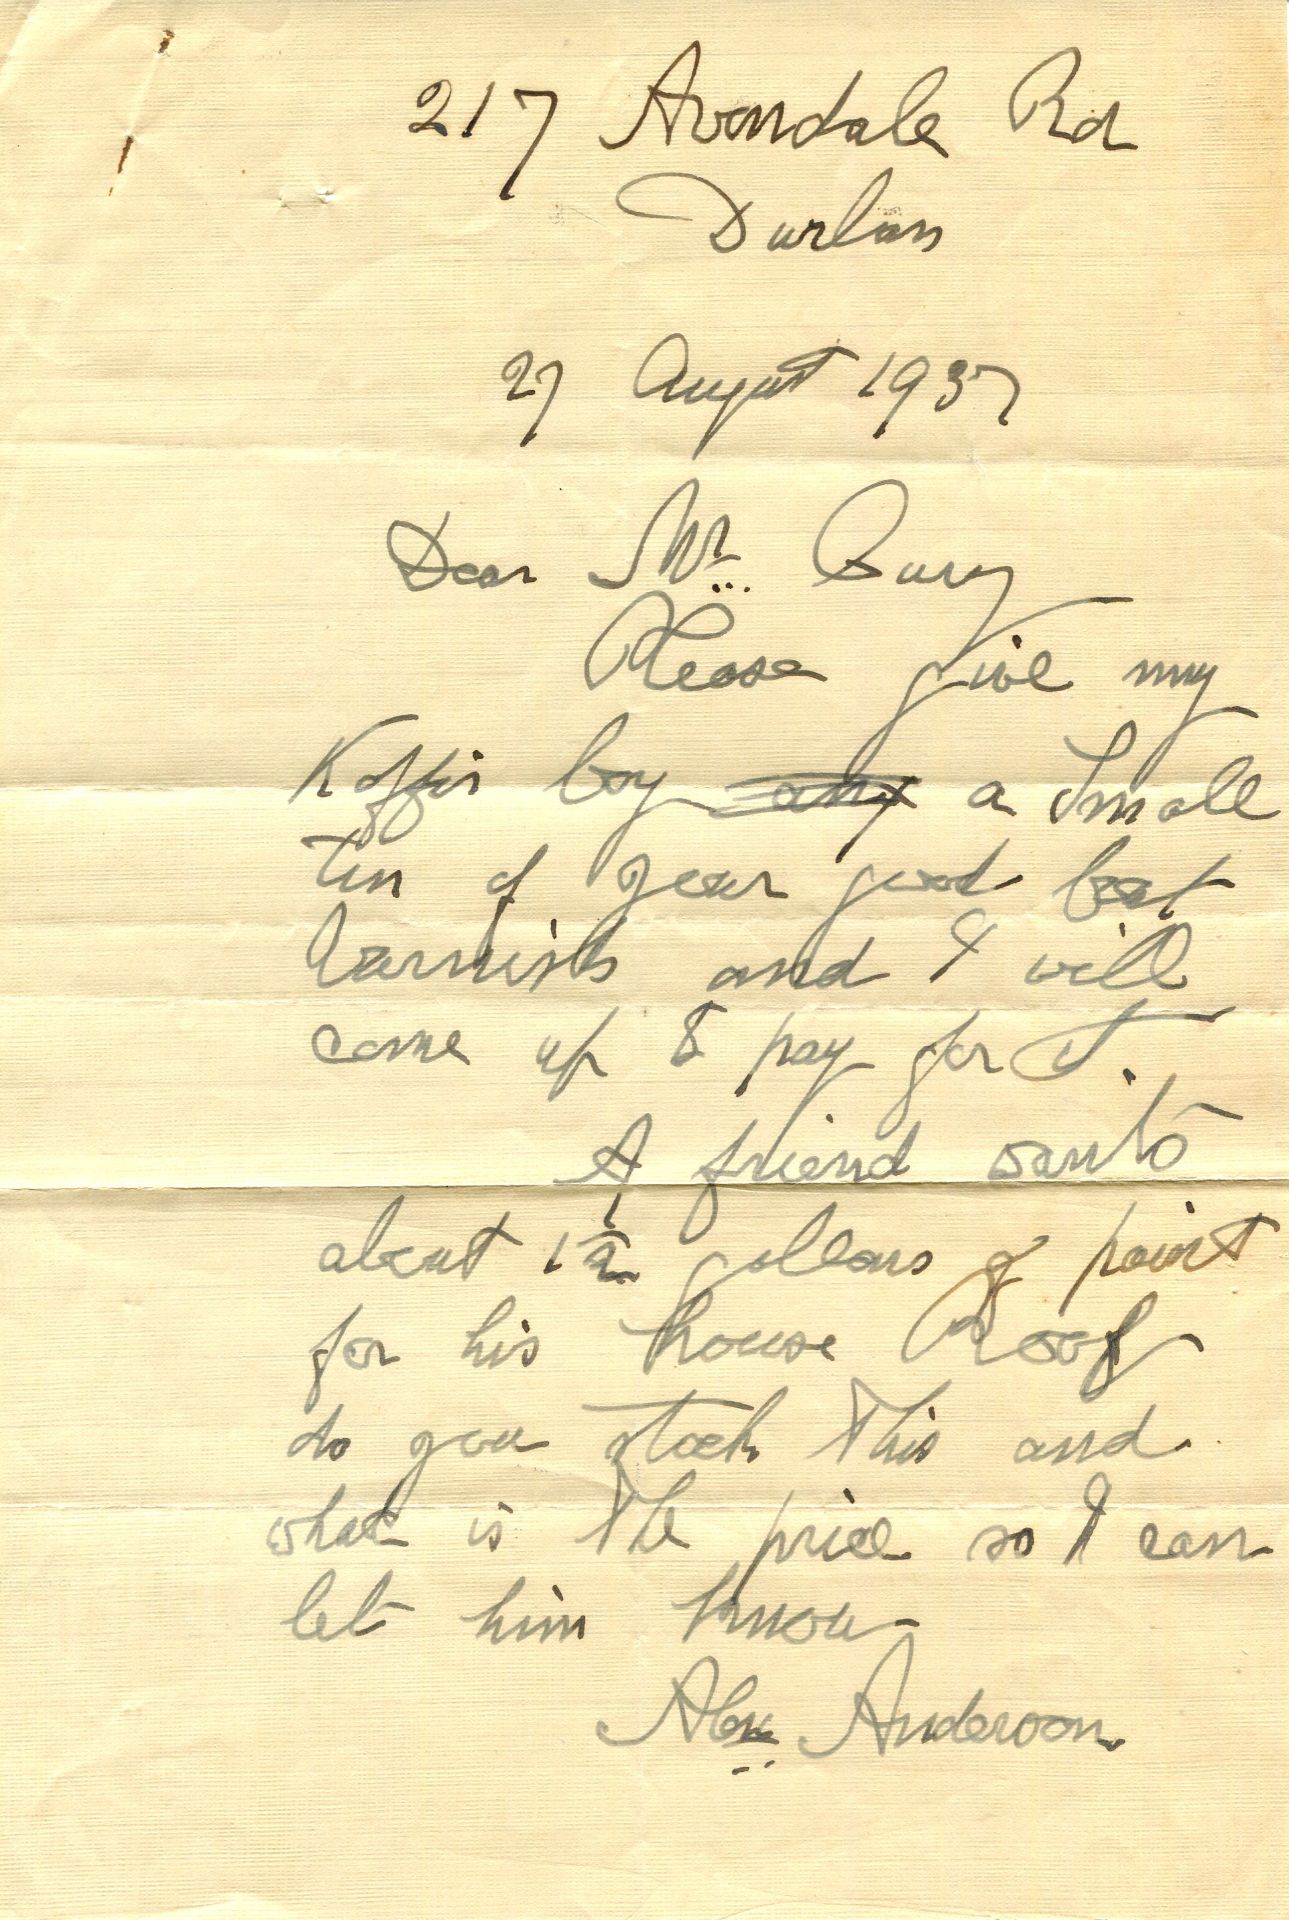 217 Avondale Rd
Durban
27 August 1937
Dear Mr. Bury
Please give my
Kaffir boy any a small
tin of your good boat
Varnish and I will
come up & pay for it.
A friend wants
about 1½ gallons of paint
for his house Roof
do you stock this and
what is the price so I can
let him know
Alex Anderson